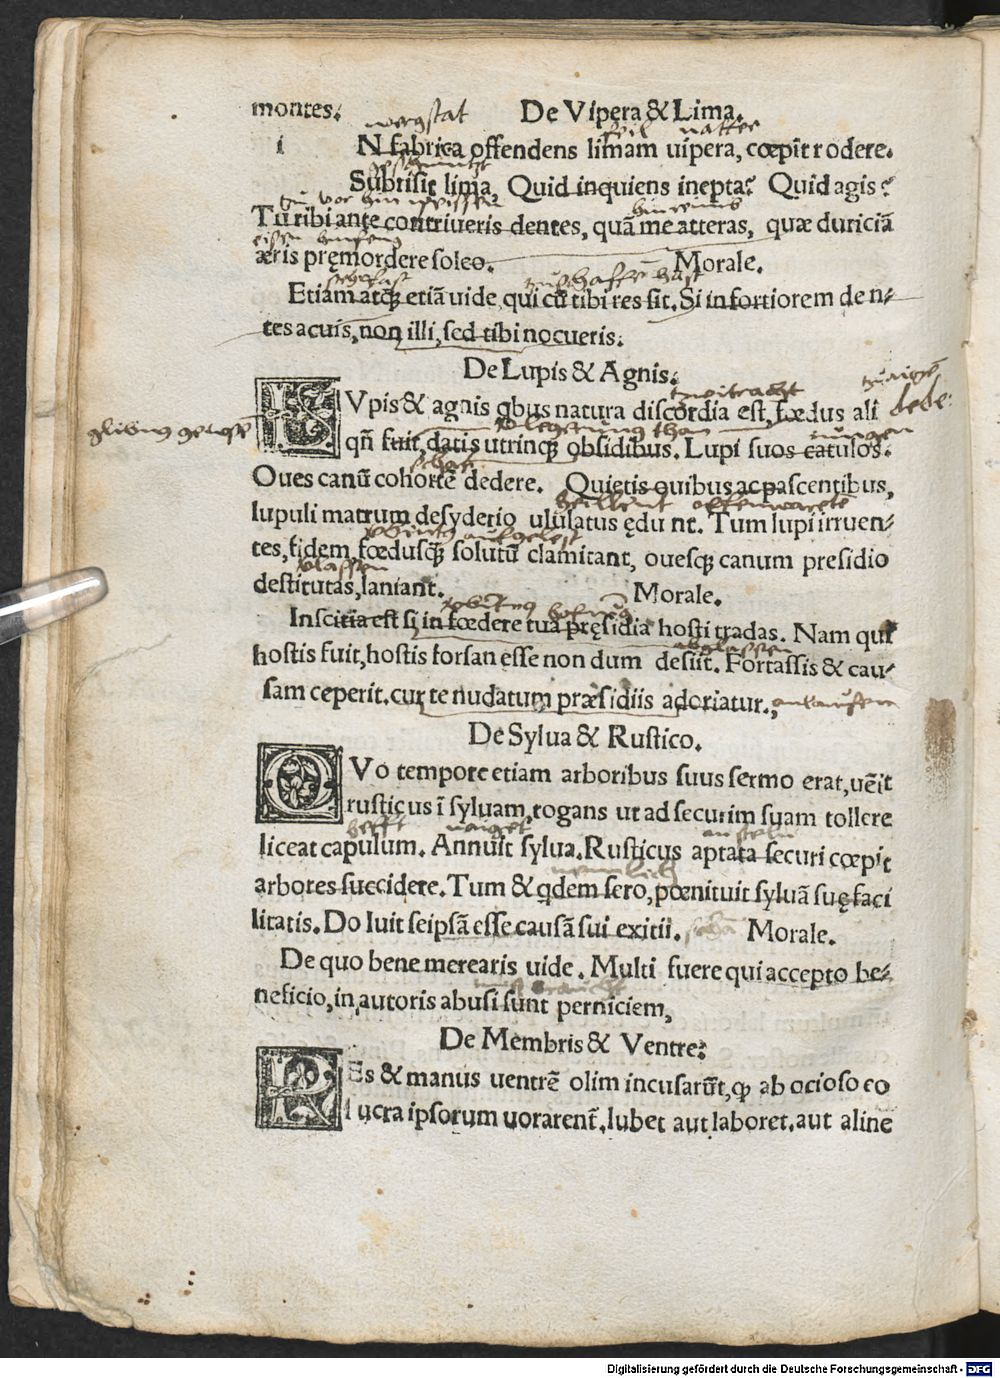 montes. De Vipera & Lima.
wergstat feil natter
i N fabrica offendens limam uipera, cœpit rodere.
Subrisit lima, Quid inquiens inepta? Quid agis?
Tu tibi ante contriueris dentes, quã me atteras, quæ duriciã
æris pręmordere soleo. Morale.
Etiam atq; etiã uide, qui cũ tibi res sit. Si in fortiorem den-
tes acuis, non illi, sed tibi nocueris.
De Lupis & Agnis.
zwitracht
LVpis & agnis qbus natura discordia est, fœdus ali
dede:
qñ fuit, datis utrinq; obsidibus. Lupi suos catulos.
Oues canũ cohortẽ dedere. Quietis ouibus ac pascentibus,
lupuli matrum desyderio ululatus ędunt. Tum lupi irruen-
aufgelest
tes, fidem fœdusq; solutũ clamitant, ouesq; canum presidio
destitutas, laniant. Morale.
Inscitia est si in fœdere tua pręsidia hosti tradas. Nam qui
hostis fuit, hostis forsan esse non dum desiit. Fortassis & cau-
sam ceperit. cur te nudatum præsidiis adoriatur.
De Sylua & Rustico.
QVo tempore etiam arboribus suus sermo erat, uẽit
rusticus ĩ syluam, rogans ut ad securim suam tollere
hefft
liceat capulum. Annuit sylua. Rusticus aptata securi cœpit
arbores succidere. Tum & qdem sero, pœnituit syluã suę faci
litatis. Doluit seipsã esse causã sui exitii. Morale.
De quo bene merearis uide. Multi fuere qui accepto be-
neficio, in autoris abusi sunt perniciem,
De Membris & Ventre.
PEs & manus uentrẽ olim incusarũt, q ab ocioso eo
lucra ipsorum uorarent̃. Iubet aut laboret, aut aline
Digitalisierung gefördert durch die Deutsche Forschungsgemeinschaft - DFG